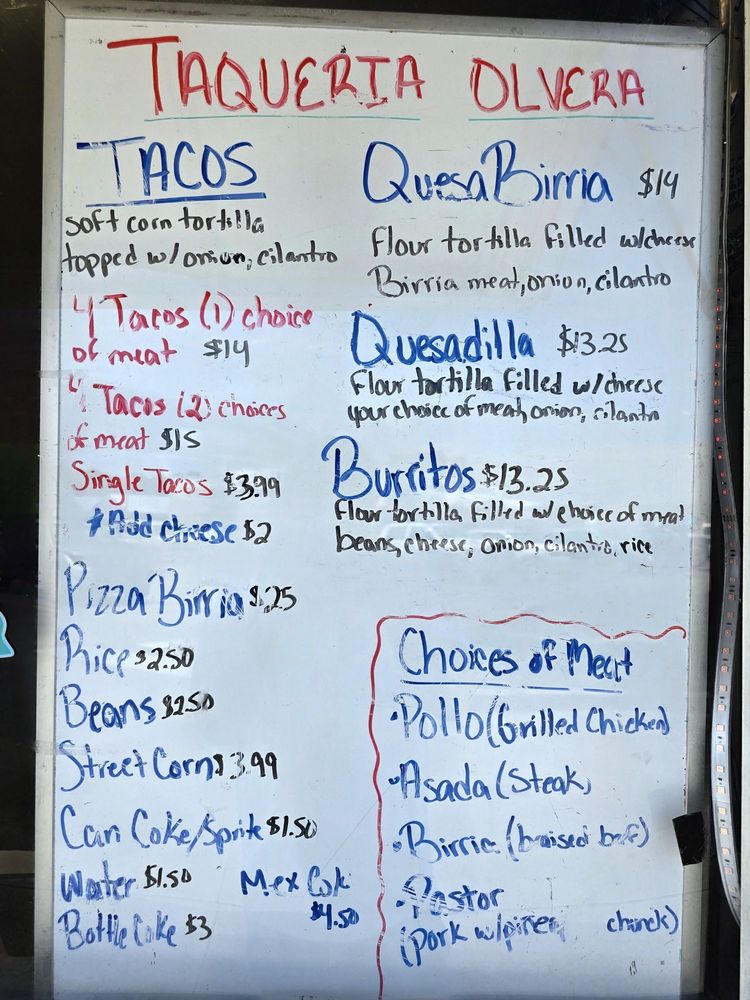 TAQUERIA OLVERA
TACOS
soft corn tortilla
topped w/onion, cilantro
4 Tacos (1) choice
of meat $14
4 Tacos (2) choices
of meat $15
Single Tacos $3.99
*Add cheese $2
Pizza Birria $25
Rice $2.50
Beans $2.50
Street Corn $3.99
Can Coke/Sprite $1.50
Water $1.50
Bottle Coke $3
Mex Cok
$4.50
QuesaBirria $14
Flour tortilla filled w/cheese
Birria meat, onion, cilantro
Quesadilla $13.25
Flour tortilla filled w/cheese
your choice of meat, onion, cilantro
Burritos $13.25
Flour tortilla filled w/choice of meat
beans, cheese, onion, cilantro, rice
Choices of Meat
•Pollo (Grilled Chicken)
•Asada (Steak)
•Birria (braised beef)
•Pastor
(pork w/ chunck)